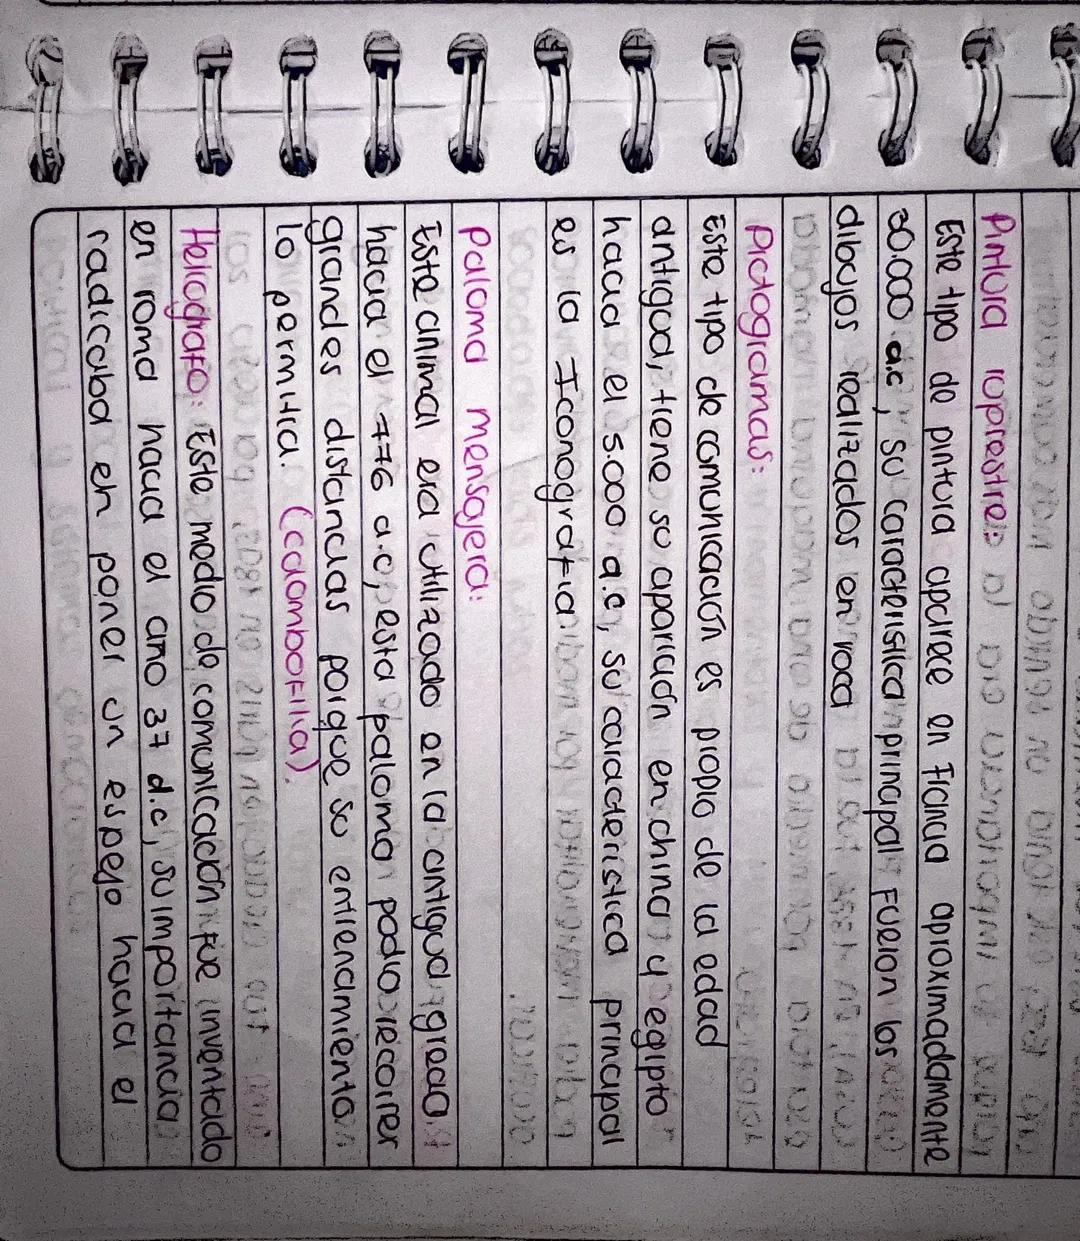 Pintura roprestre:
Este tipo de pintura aparece en Francia aproximadamente
30.000 a.c, su caracteristica principal fueron los
dibujos realizados en roca
Pictogramas:
Este tipo de comunicación es propio de la edad
antigua, tiene su aparición en china y egipto
hacia el 5.000 a.c, su caracteristica principal
es la Iconografia
Paloma mensajera:
Este animal era utilizado en la antigua grecia
hacia el 776 a.c, esta paloma podia recorrer
grandes distancias porque su entrenamiento
lo permitia. (colombofilia).
Heliografo: Este medio de comunicación fue inventado
en roma hacia el año 37 d.c, su importancia
radicaba en poner un espejo hacia el